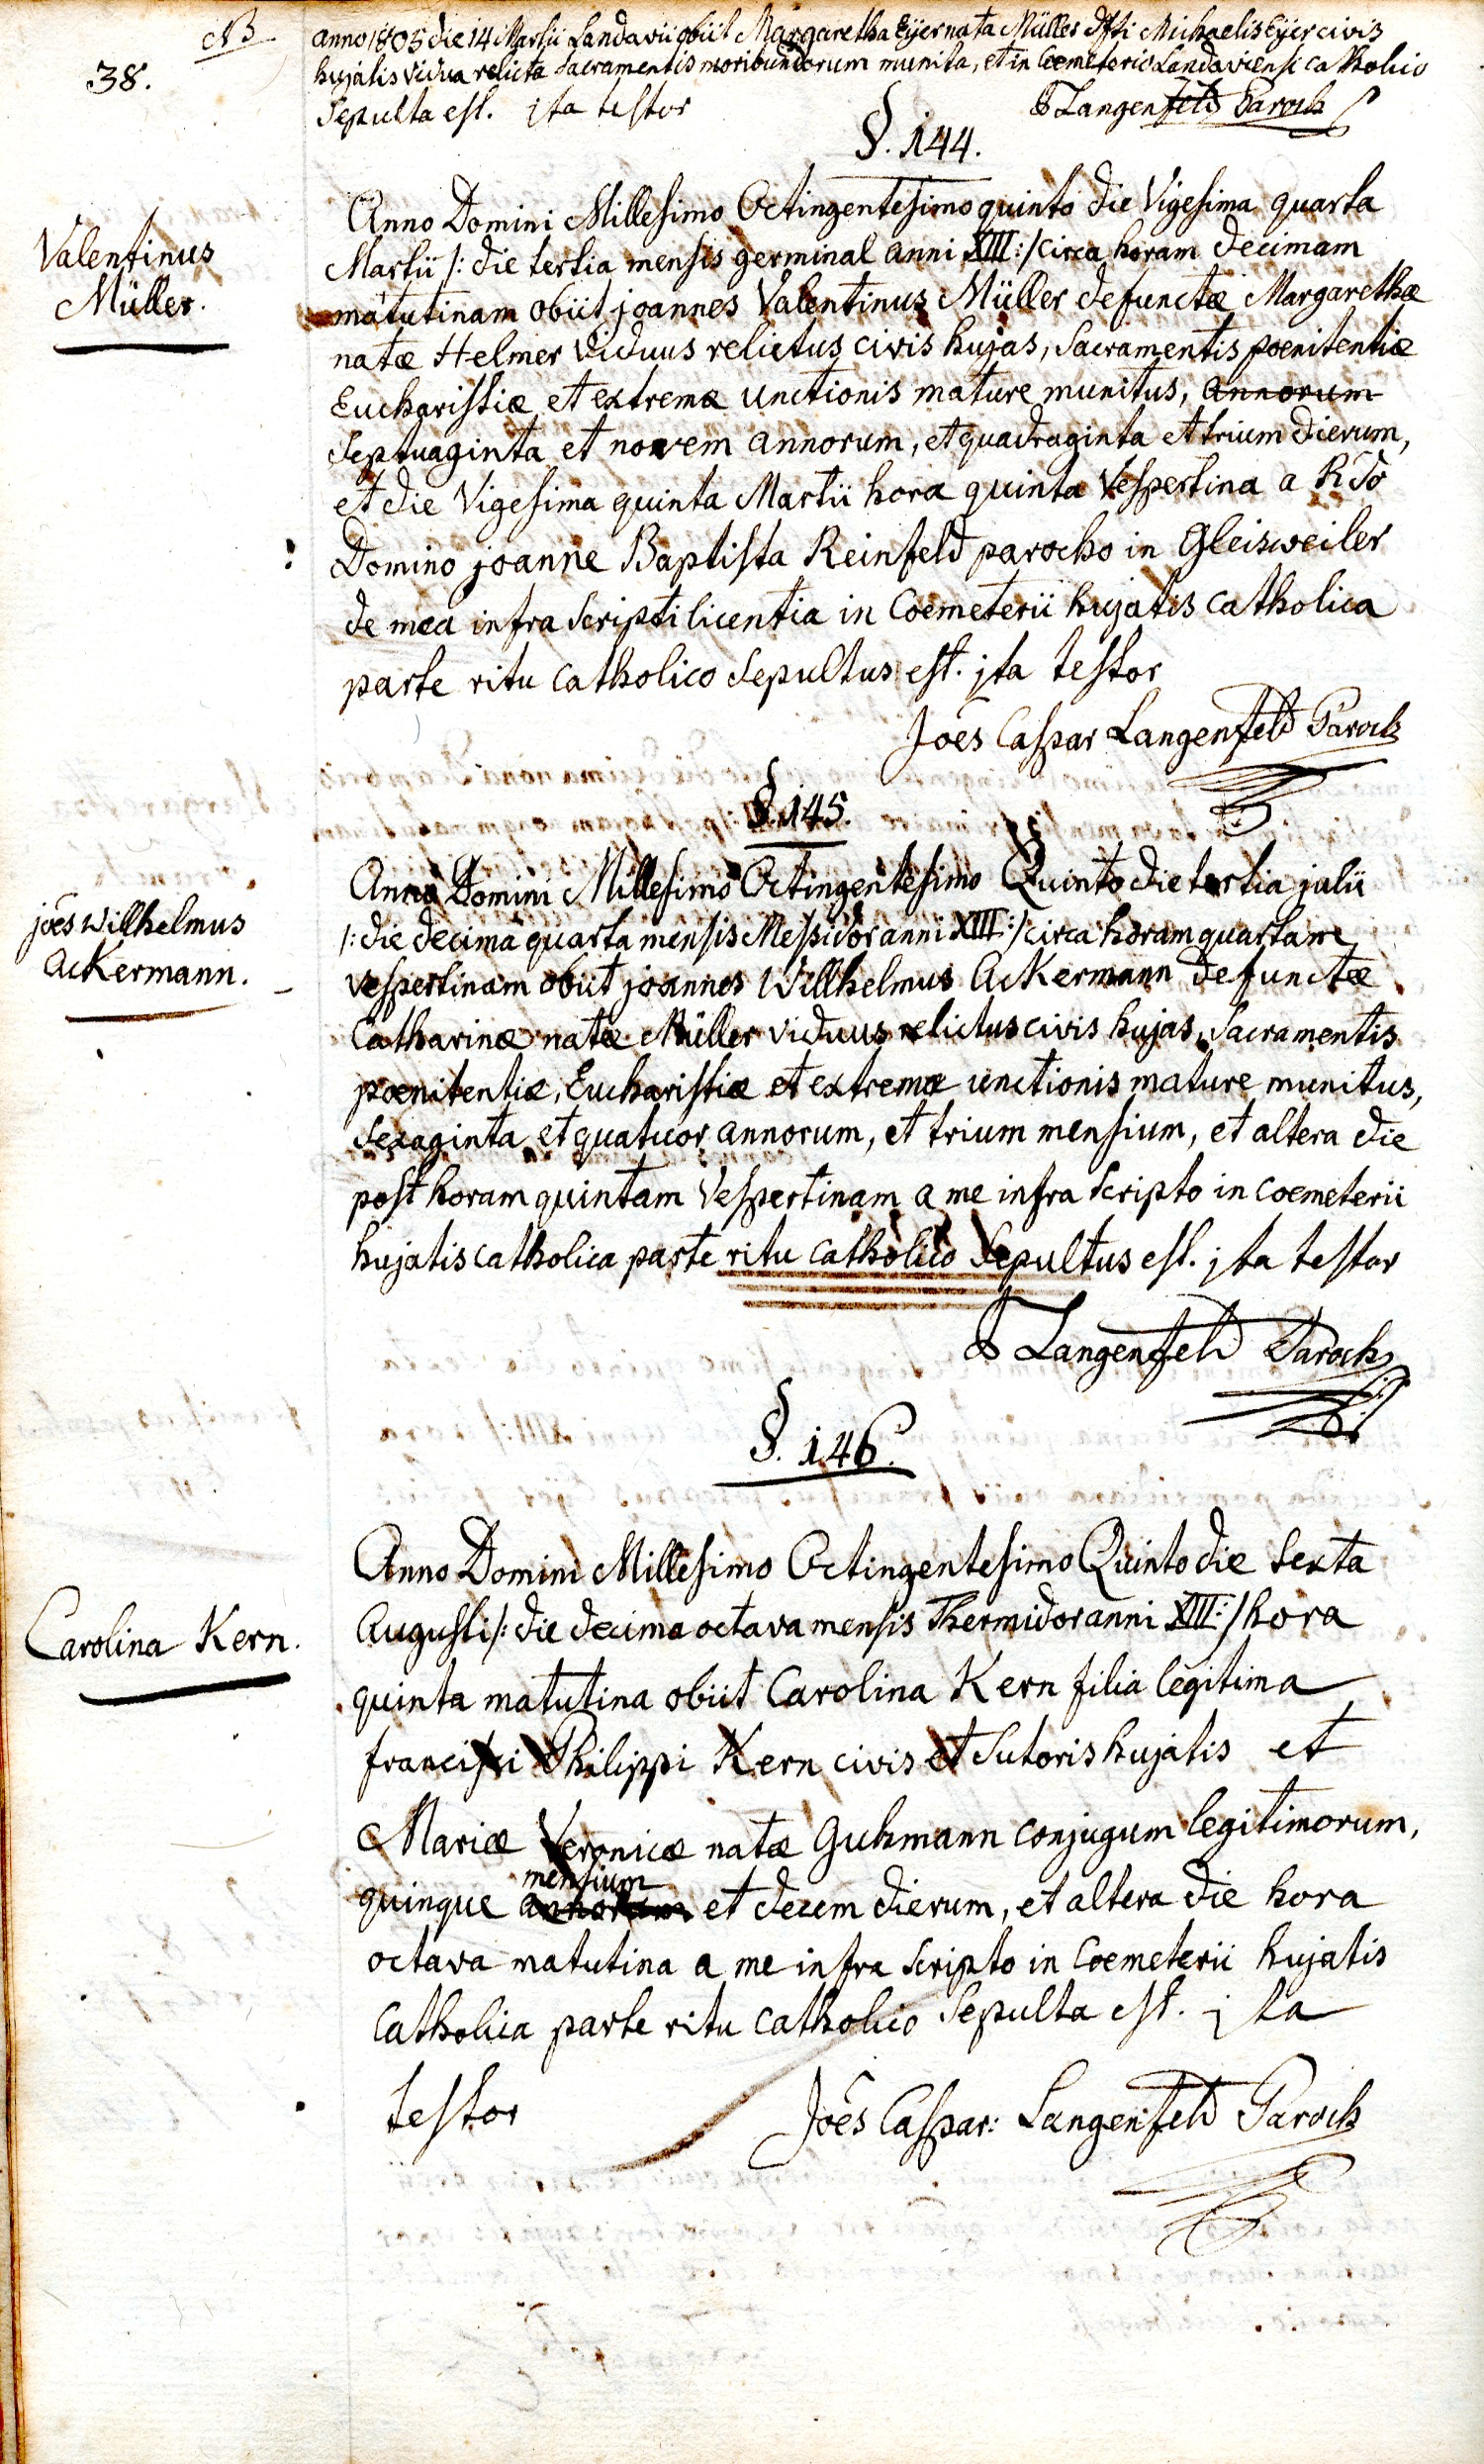 NB
38.
anno 1805 die 14 Martii Landavii obiit Margaretha Eyer nata Müller dfti Michaelis Eyer civis
hujatis vidua relicta sacramentis moribundorum munita, et in Coemeterio Landaviensi catholico
Sepulta est. jta testor
Langenfeld Paroch
§. 144.
Valentinus
Müller.
Anno Domini Millesimo Octingentesimo quinto die Vigesima quarta
Martii /: die tertia mensis germinal anni XIII :/ circa horam decimam
matutinam obiit joannes Valentinus Müller defunctæ Margarethæ
natæ Helmer viduus relictus civis hujas, Sacramentis poenitentiæ
Eucharistiæ et extremæ unctionis mature munitus, annorum
septuaginta et novem annorum, et quadraginta et trium dierum,
et die Vigesima quinta Martii hora quinta Vespertina a Rdo
Domino joanne Baptista Reinfeld parocho in Gleisweiler
de mea infra scripti licentia in Coemeterii hujatis catholica
parte ritu catholico Sepultus est. jta testor
Joes Caspar Langenfeld Paroch
§. 145.
joes Willhelmus
Ackermann.
Anno Domini Millesimo Octingentesimo Quinto die tertia julii
/: die decima quarta mensis Messidor anni XIII :/ circa horam quartam
vespertinam obiit joannes Willhelmus Ackermann defunctæ
Catharinæ natæ Müller viduus relictus civis hujas, Sacramentis
poenitentiæ, Eucharistiæ et extremæ unctionis mature munitus,
Sexaginta et quatuor annorum, et trium mensium, et altera die
post horam quintam Vespertinam a me infra scripto in coemeterii
hujatis catholica parte ritu catholico Sepultus est. jta testor
Langenfeld Paroch
§. 146.
Carolina Kern.
Anno Domini Millesimo Octingentesimo Quinto die Sexta
Augusti /: die decima octava mensis Thermidor anni XIII :/ hora
quinta matutina obiit Carolina Kern filia legitima
francisci Philippi Kern civis et Sutoris hujatis et
Mariæ Veronicæ natæ Guhmann conjugum legitimorum,
mensium
quinque annorum et decem dierum, et altera die hora
octava matutina a me infra scripto in Coemeterii hujatis
catholica parte ritu catholico Sepulta est. jta
testor
Joes Caspar: Langenfeld Paroch